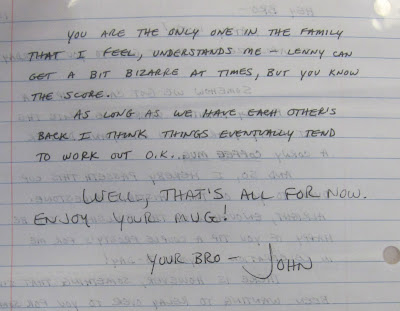 YOU ARE THE ONLY ONE IN THE FAMILY
THAT I FEEL, UNDERSTANDS ME – LENNY CAN
GET A BIT BIZARRE AT TIMES, BUT YOU KNOW
THE SCORE.
AS LONG AS WE HAVE EACH OTHER'S
BACK I THINK THINGS EVENTUALLY TEND
TO WORK OUT O.K...
WELL, THAT'S ALL FOR NOW.
ENJOY YOUR MUG!
YOUR BRO – JOHN